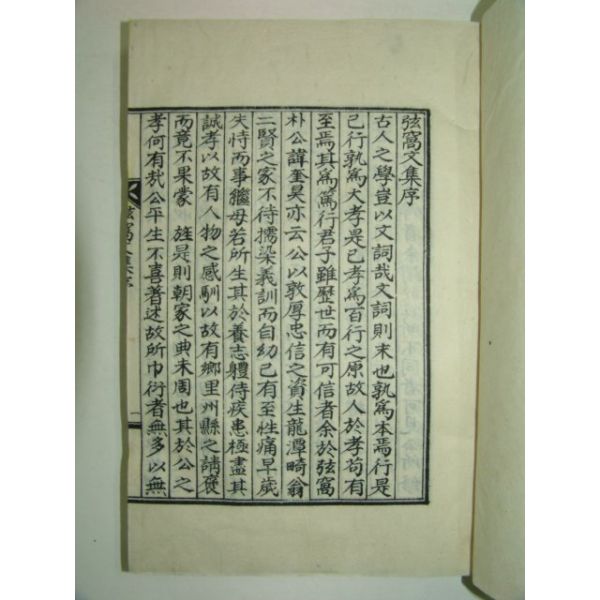 弦窩文集序
古人之學豈以文詞哉文詞則末也孰爲本焉行是
已行孰爲大孝是已孝爲百行之原故人於孝苟有
至焉其爲篤行君子雖歷世而有可信者余於弦窩
朴公諱奎昊亦云公以敦厚忠信之資生龍潭畸翁
二賢之家不待擩染義訓而自幼已有至性痛早歲
失恃而事繼母若所生其於養志軆侍疾患極盡其
誠孝以故有人物之感馴以故有鄕里州縣之請褒
而竟不果蒙 旌是則朝家之典未周也其於公之
孝何有㢤公平生不喜著述故所巾衍者無多以無
弦窩文集序
一